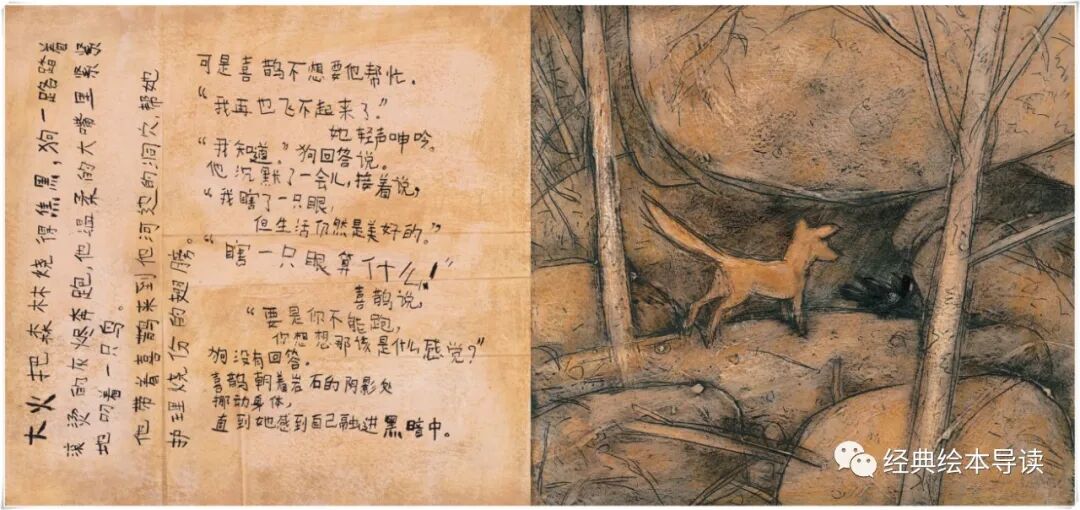 大火把森林烧得焦黑,狗一路踏着
滚烫的灰烬奔跑,他温柔的大嘴里紧紧
地叼着一只鸟。
他带着喜鹊来到他河边的洞穴,帮她
护理烧伤的翅膀。
可是喜鹊不想要他帮忙。
“我再也飞不起来了。”
她轻声呻吟。
“我知道。”狗回答说。
他沉默了一会儿,接着说,
“我瞎了一只眼,
但生活仍然是美好的。”
“瞎一只眼算什么!”
喜鹊说,
“要是你不能跑,
你想想那该是什么感觉?”
狗没有回答。
喜鹊朝着岩石的阴影处
挪动身体,
直到她感到自己融进黑暗中。
经典绘本导读